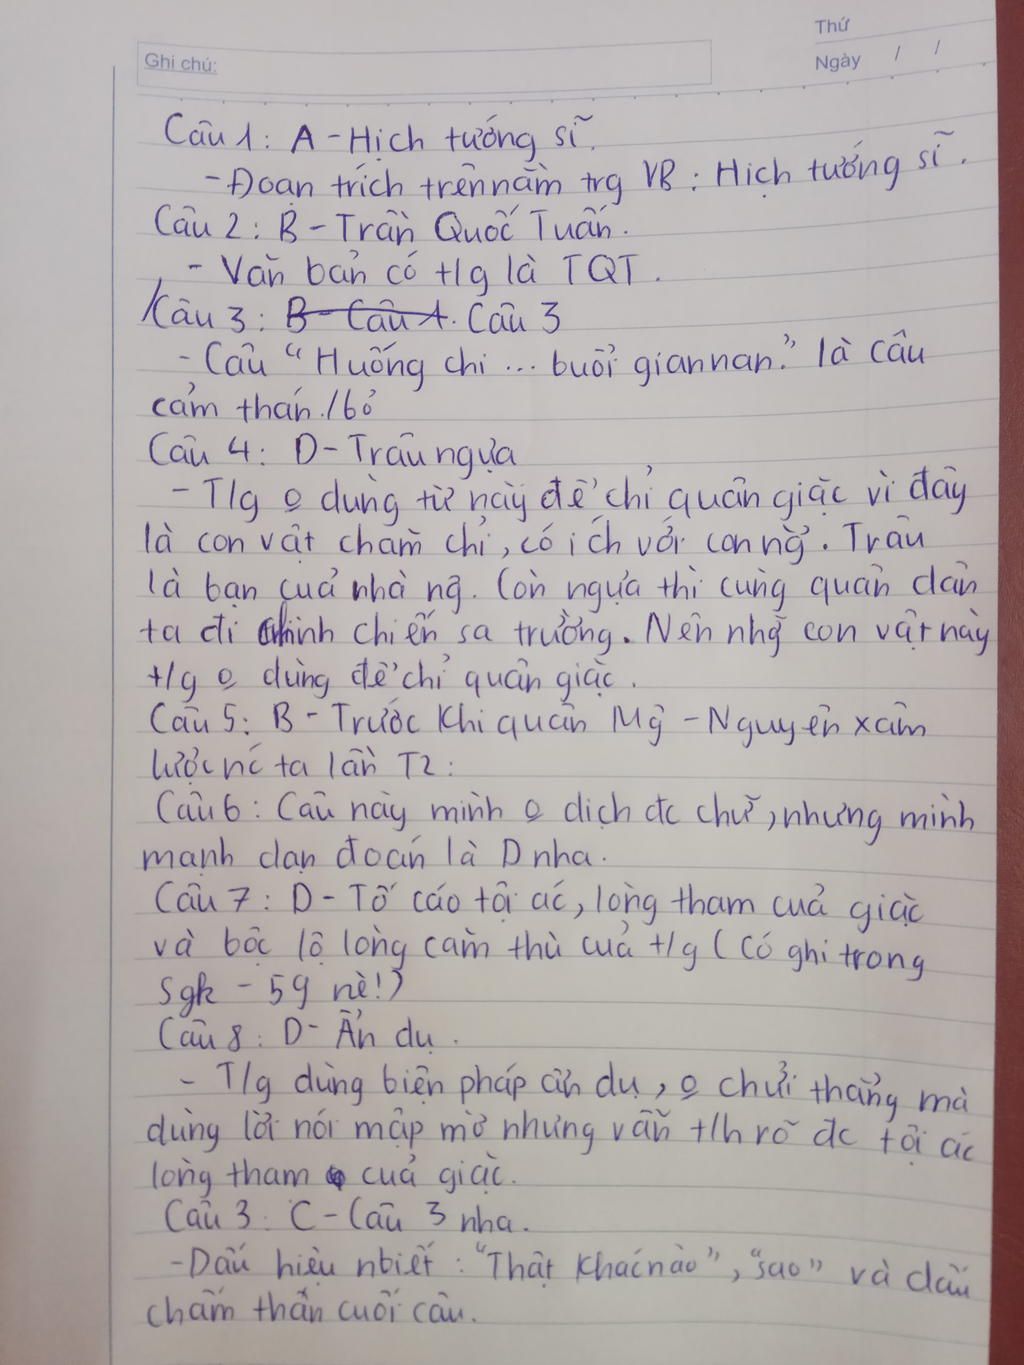 Thứ
Ghi chú:
Ngày / /
Câu 1: A - Hịch tướng sĩ.
- Đoạn trích trên nằm trg VB: Hịch tướng sĩ.
Câu 2: B - Trần Quốc Tuấn.
- Văn bản có t/g là TQT.
Câu 3: B - Câu 1. Câu 3
- Câu "Huống chi ... buổi gian nan." là câu
cảm thán. / bỏ
Câu 4: D - Trâu ngựa
- T/g o dùng từ này để chỉ quân giặc vì đây
là con vật chăm chỉ, có ích với con ng`. Trâu
là bạn của nhà ng. Còn ngựa thì cùng quân dân
ta đi chinh chiến sa trường. Nên nhg con vật này
t/g o dùng để chỉ quân giặc.
Câu 5: B - Trước khi quân Mg - Nguyên xâm
lược nc ta lần T2:
Câu 6: Câu này mình o dịch đc chữ, nhưng mình
mạnh dạn đoán là D nha.
Câu 7: D - Tố cáo tội ác, lòng tham của giặc
và bộc lộ lòng căm thù của t/g (Có ghi trong
sgk - 59 nè!)
Câu 8: D - Ẩn dụ.
- T/g dùng biện pháp ẩn dụ, o chửi thẳng mà
dùng lời nói mập mờ nhưng vẫn t/h rõ đc tội ác
lòng tham của giặc.
Câu 3: C - Câu 3 nha.
- Dấu hiệu nbiết: "Thật khác nào", "sao" và dấu
chấm thần cuối câu.